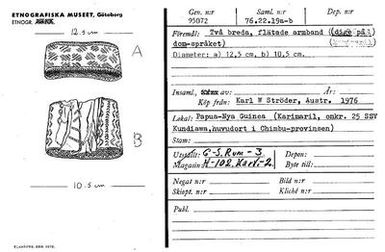 ETNOGRAFISKA MUSEET, Göteborg
12.5 cm
A
B
10.5 cm
Gen. nr
95072
Saml. nr
76.22.19a-b
Dep. nr
Föremål: Två breda, flätade armband
dom-språket)
Diameter: a) 12,5 cm. b) 10,5 cm.
Insaml. av:
År:
Köp från: Karl W Ströder, Austr. 1976
Lokal: Papua-Nya Guinea (Karimaril, omkr. 25 SSV
Kundiawa, huvudort i Chimbu-provinsen)
Stam:
G-S. Rum-3
Depon:
Magasin H-102. Kart-2.
Byte till:
Negat nr
Bild nr
Skiopt. nr
Kliché nr
Publ.